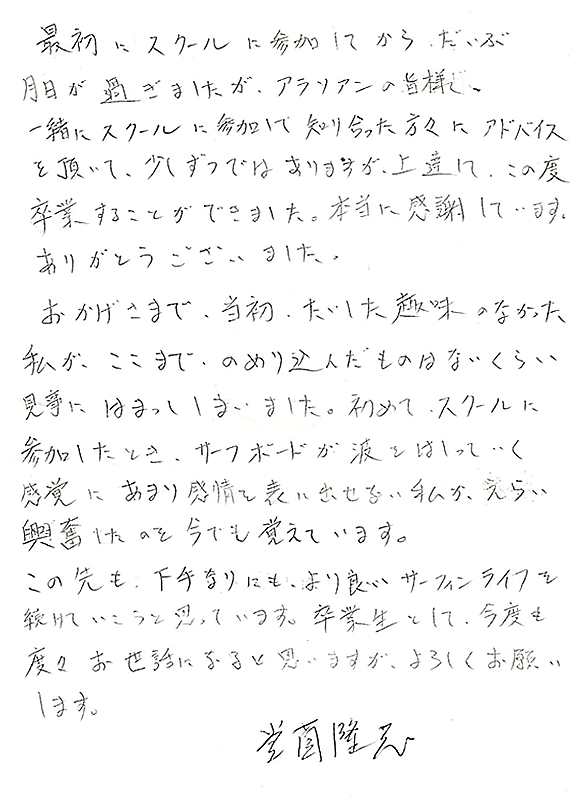 最初にスクールに参加してから、だいぶ
月日が過ぎましたが、アラリアンの皆様や、
一緒にスクールに参加して知り合った方々にアドバイス
を頂いて、少しずつではありますが、上達して、この度
卒業することができました。本当に感謝しています。
ありがとうございました。
おかげさまで、当初、たいした趣味のなかった
私が、ここまで、のめり込んだものはないくらい
見事にはまってしまいました。初めて、スクールに
参加したとき、サーフボードが波をはしっていく
感覚にあまり感情を表に出せない私が、えらい
興奮したのを今でも覚えています。
この先も、下手なりにも、より良いサーフィンライフを
続けていこうと思っています。卒業生として、今度も
度々お世話になると思いますが、よろしくお願い
します。